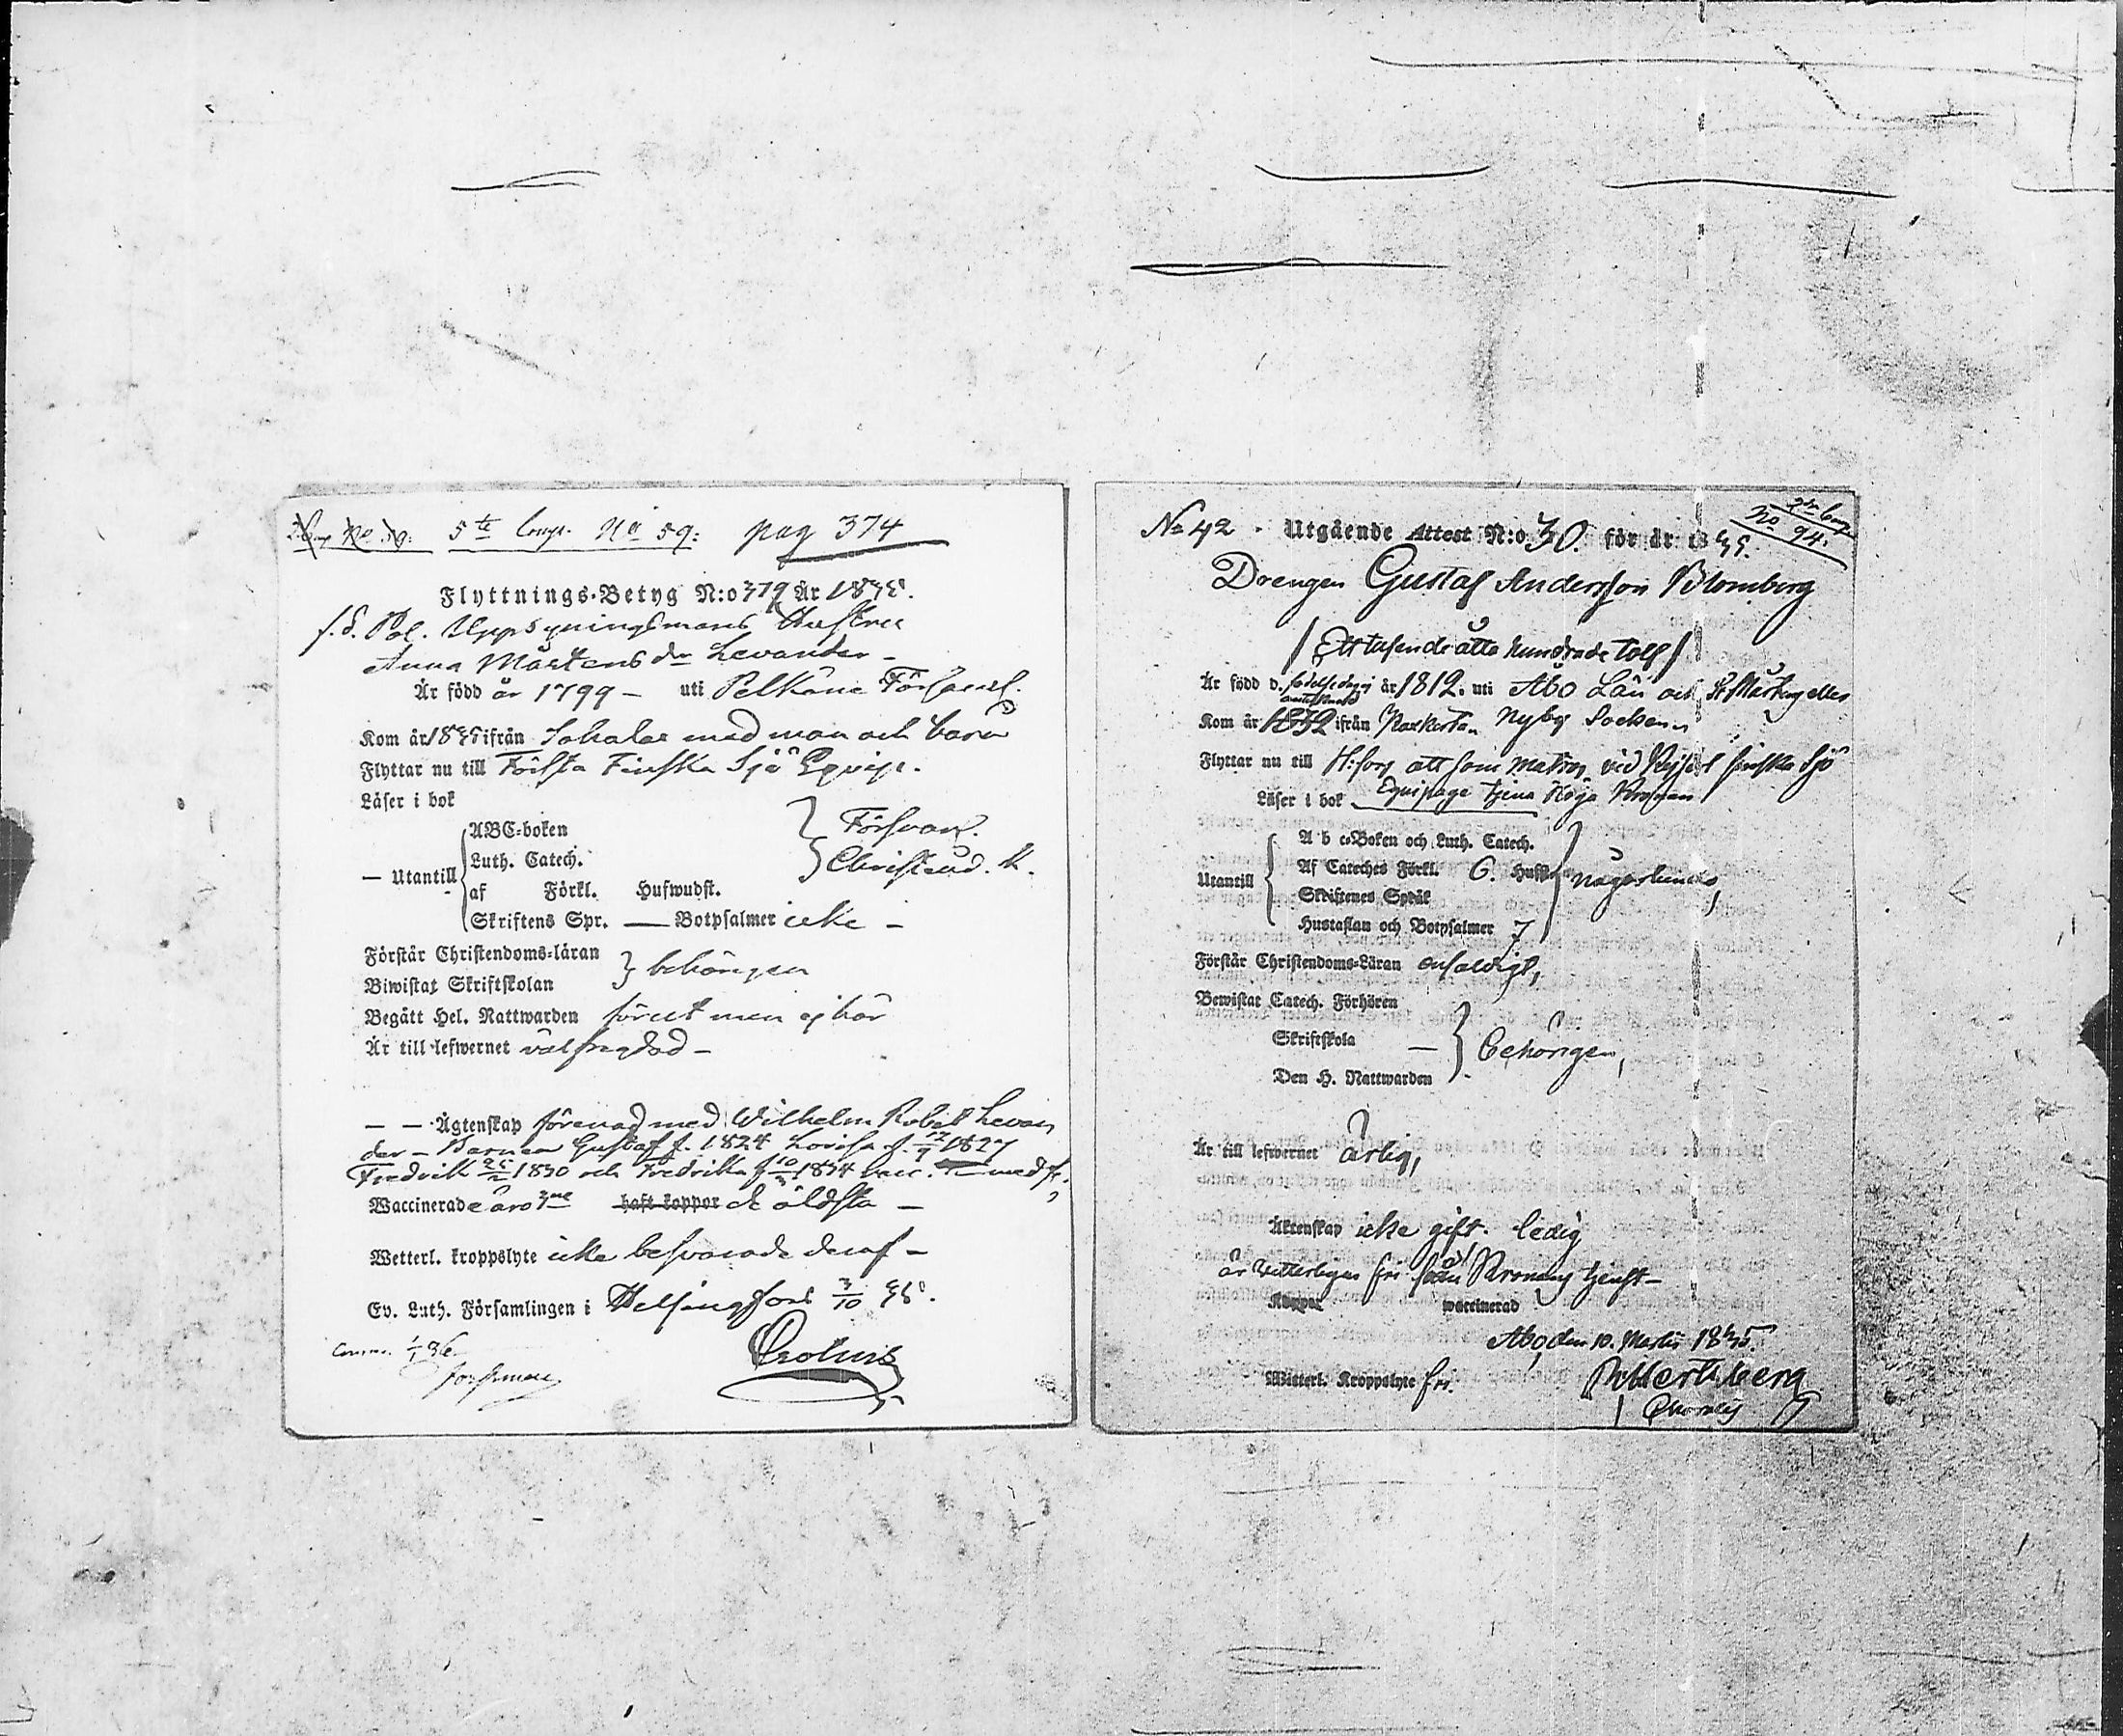 5te Comp. No 59: pag 374
Flyttnings-Betyg N:o 379 År 1835.
f. d. Pol. Uppsyningsmans Hustru
Anna Mårtens dr Levander -
Är född år 1799 - uti Pelkäne Församl.
Kom år 1835 ifrån med man och barn
Flyttar nu till Första Finska Sjö Equip.
Läser i bok
ABC-boken
Luth. Catech.
— Utantill
af Förkl. Hufwudst.
Skriftens Spr. — Botpsalmer icke -
Försvarl.
Christend. K.
Förstår Christendoms-läran
Biwistat Skriftskolan
behörigen
Begått Hel. Nattwarden förut men ej här
Är till lefwernet välfregdad -
— — Ägtenskap förenad med Wilhelm Robert Levan
der - Barnen Gustaf f. 1824 Lovisa f. 1827
Fredrik 1830 och Fredrika f. 1834
Waccinerade äro 3ne haft koppor de äldsta -
Wetterl. kroppslyte icke besvärade deraf -
Ev. Luth. Församlingen i Helsingfors 3/10 35.
Crolius
Forsman
No 42. Utgående Attest N:o 30. för år 1835.
No 94.
Drengen Gustaf Andersson Blomberg
/ Ett tusende åtta hundrade tolf /
Är född d. år 1812. uti Åbo Län och St Mårtens
Kom år 1832 ifrån Nyby Socken
Flyttar nu till H:fors att som matros vid Finska Sjö
Läser i bok Equipage tjena Höga Kronan
A b c-Boken och Luth. Catech.
Af Cateches Förkl. 6. Hufst
Utantill
Skriftenes Språk
Hustaflan och Botpsalmer 7
någorlunda,
Förstår Christendoms-Läran enfaldigt,
Bewistat Catech. Förhören
Skriftskola —
Den H. Nattwarden
behörigen,
Är till lefwernet ärlig,
Äktenskap icke gift. ledig
är vetterligen fri från Kronans tjenst -
Koppor waccinerad
Åbo, den 10. Martii 1835.
Witterl. Kroppslyte fri.